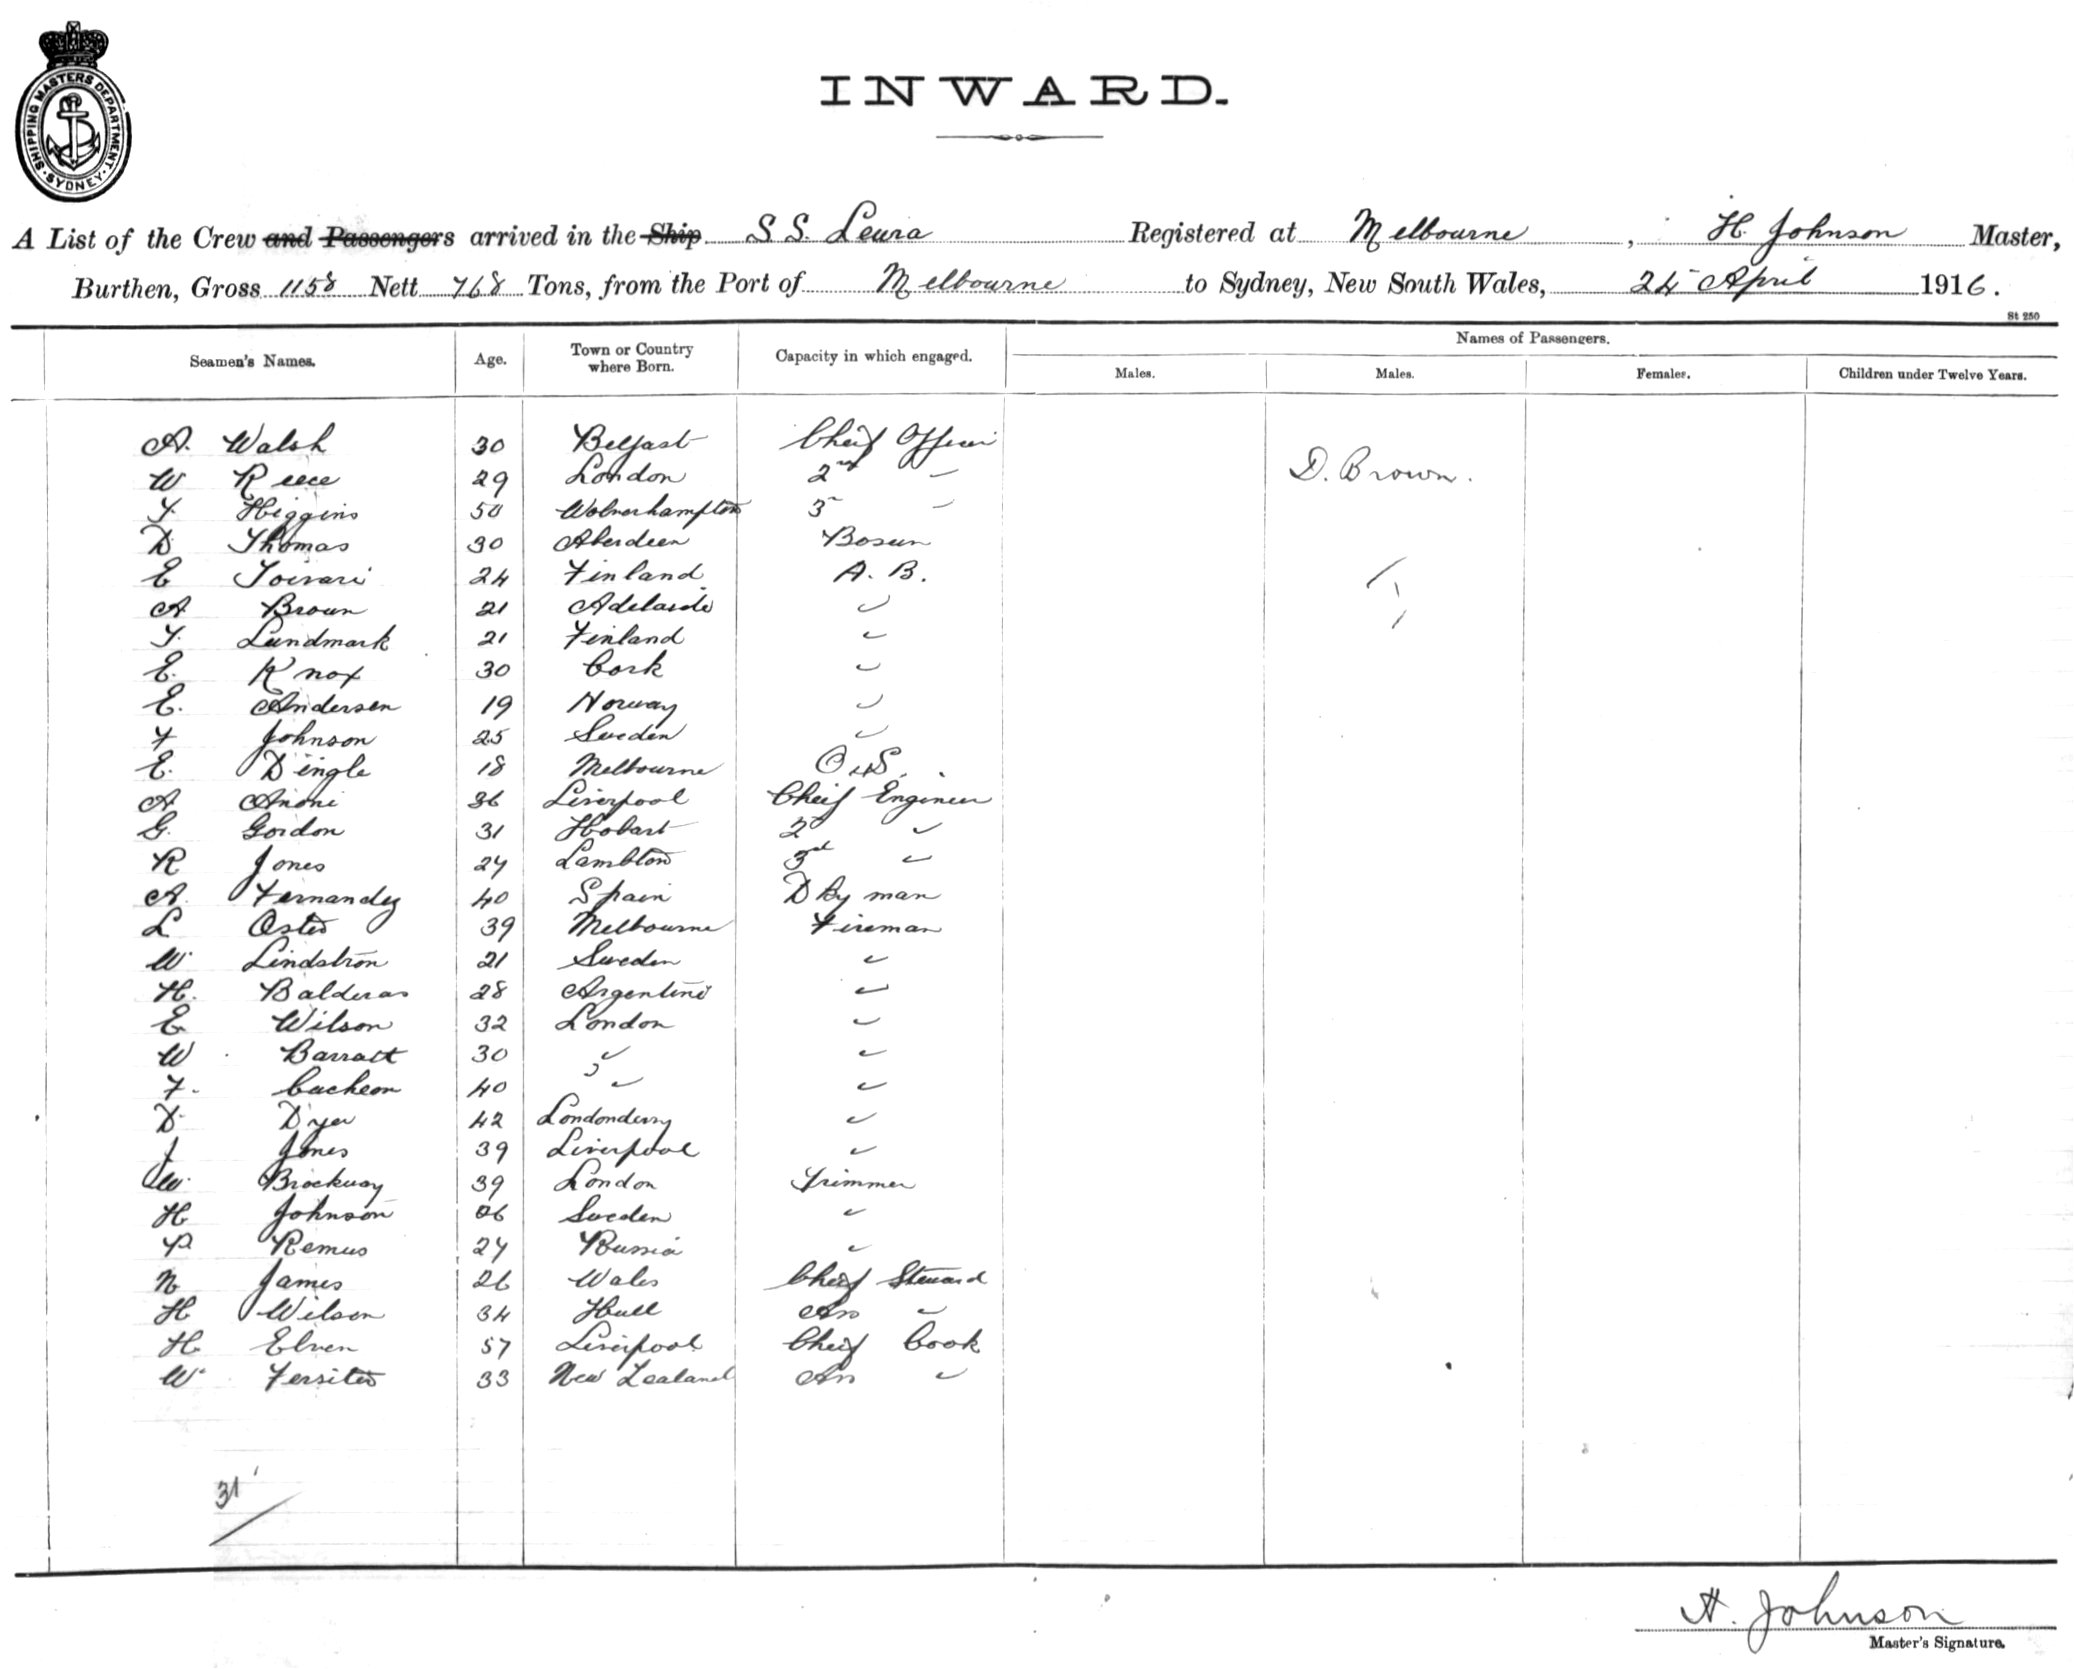 SHIPPING MASTERS DEPARTMENT. SYDNEY.
INWARD.
A List of the Crew and Passengers arrived in the Ship S S. Leura Registered at Melbourne, H. Johnson Master,
Burthen, Gross 1158 Nett 768 Tons, from the Port of Melbourne to Sydney, New South Wales, 24 April 1916.
St 250
Seamen's Names. Age. Town or Country where Born. Capacity in which engaged. Names of Passengers.
Males. Males. Females. Children under Twelve Years.
A. Walsh 30 Belfast Cheif Officer
W Reece 29 London 2nd " D. Brown.
T. Higgins 50 Wolverhampton 3 "
D. Thomas 30 Aberdeen Bosun
E Toivari 24 Finland A. B.
A Broun 21 Adelaide "
T. Lundmark 21 Finland "
E. Knox 30 Cork "
E. Andersen 19 Norway "
F Johnson 25 Sweden "
E. Dingle 18 Melbourne O.S.
A 36 Liverpool Cheif Engineer
G. Gordon 31 Hobart 2 "
R Jones 27 Lambton 3rd "
A. Fernandez 40 Spain D Ky man
L 39 Melbourne Fireman
W. Lindstron 21 Sweden "
H. Balderas 28 Argentine "
E Wilson 32 London "
W Barratt 30 " "
F. 40 " "
D. Dyer 42 Londonderry "
J Jones 39 Liverpool "
W. Brockway 39 London Trimmer
H Johnson 26 Sweden "
P Remus 27 Russia "
N James 26 Wales Cheif Steward
H Wilson 34 Hull As "
H. Elven 57 Liverpool Cheif Cook
W. 33 New Zealand As "
31
H. Johnson
Master's Signature.